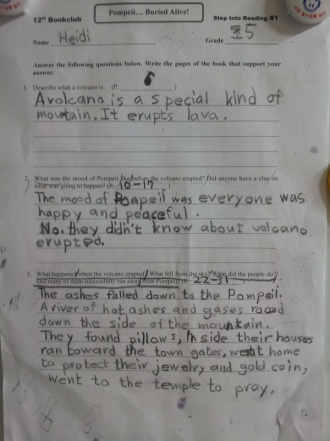 12th Bookclub
Pompeii... Buried Alive!
Step Into Reading #1
Name Heidi
Grade 5
Answer the following questions below. Write the pages of the book that support your
answer.
1. Describe what a volcano is. (P. 6 )
A volcano is a special kind of
mountain. It erupts lava.
2. What was the mood of Pompeii like before the volcano erupted? Did anyone have a clue on
what was going to happen? (P. 10-17 )
The mood of Pompeii was everyone was
happy and peaceful.
No. they didn't know about volcano
erupted.
3. What happened when the volcano erupted? What fell from the sky? What did the people do?
Did many of them successfully run away from Pompeii? (P. 22-31
The ashes falled down to the Pompeii.
A river of hot ashes and gases raced
down the side of the mountain.
They found pillows, In side their houses
ran toward the town gates, went home
to protect their jewelry and gold coin,
went to the temple to pray.